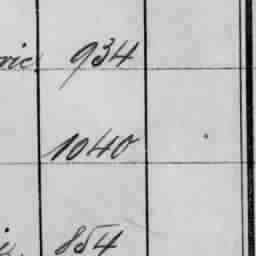 ric. 934
1040
854